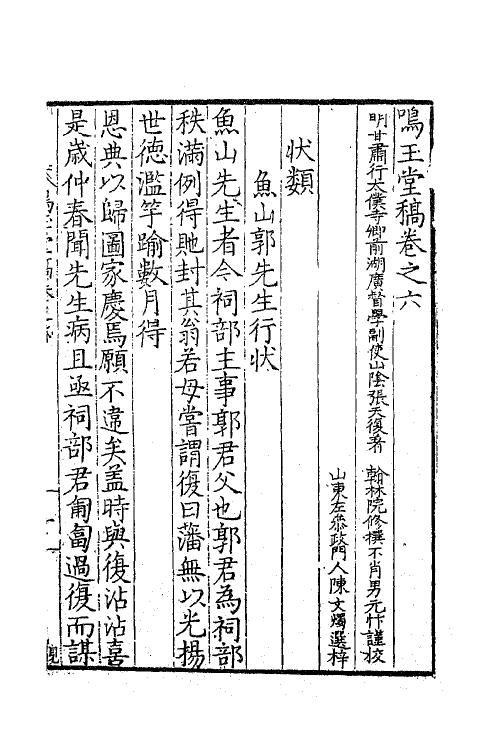 鳴玉堂稿卷之六
明甘肅行太僕寺卿前湖廣督學副使山陰張天復著　翰林院修撰不肖男元忭謹校
山東左參政門人陳文燭選梓
狀類
魚山郭先生行狀
魚山先生者今祠部主事郭君父也郭君為祠部
秩滿例得貤封其翁若母嘗謂復曰藩無以光揚
世德濫竽踰數月得
恩典以歸圖家慶焉願不違矣葢時與復沾沾喜
是歲仲春聞先生病且亟祠部君匍匐過復而謀